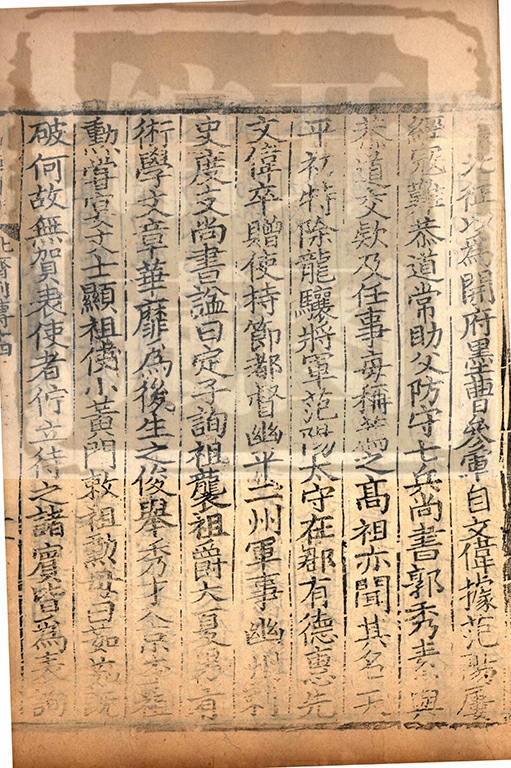 北征以為開府墨曹參軍自文偉據范陽屢
經寇難恭道常助父防守七兵尚書郭秀素與
恭道交款及任事每稱薦之高祖亦聞其名天
平初特除龍驤將軍范陽太守在郡有德惠先
文偉卒贈使持節都督幽平二州軍事幽州刺
史度支尚書謚曰定子詢祖襲祖爵大夏男有
術學文章華靡為後生之俊舉秀才入京李祖
勳嘗宴文士顯祖使小黃門敕祖勳母曰茹茹既
破何故無賀表使者佇立待之諸賓皆為表詢
北齊列傳十四